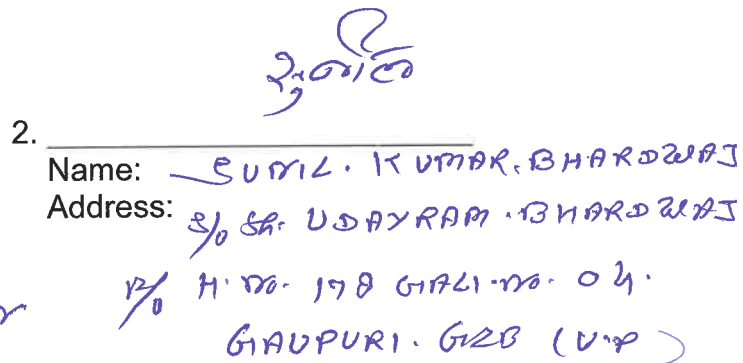 सुनील
2.
Name: SUNIL. KUMAR. BHARDWAJ
Address: S/o Sh. UDAYRAM. BHARDWAJ
R/o H. No. 178 GALI. No. 04.
GAUPURI. GZB (U.P)